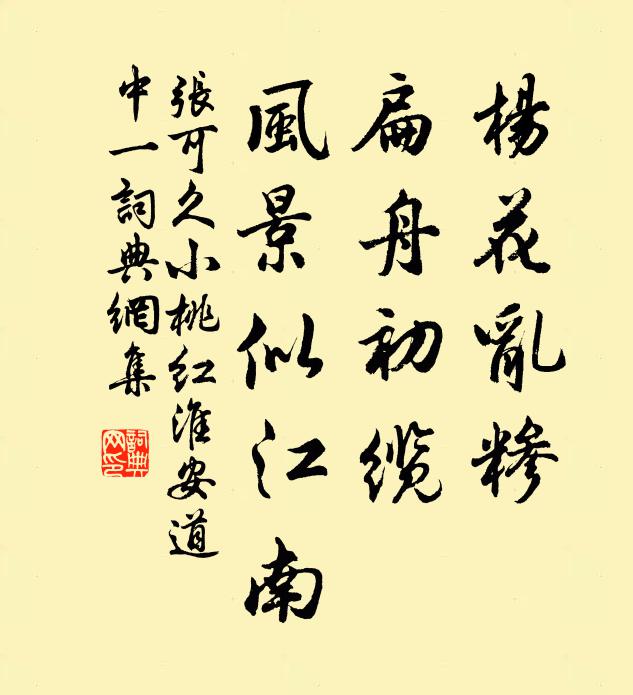 楊花亂糝
扁舟初缆
風景似江南
張可久小桃红淮安道
中一詞典網集
詞典网印